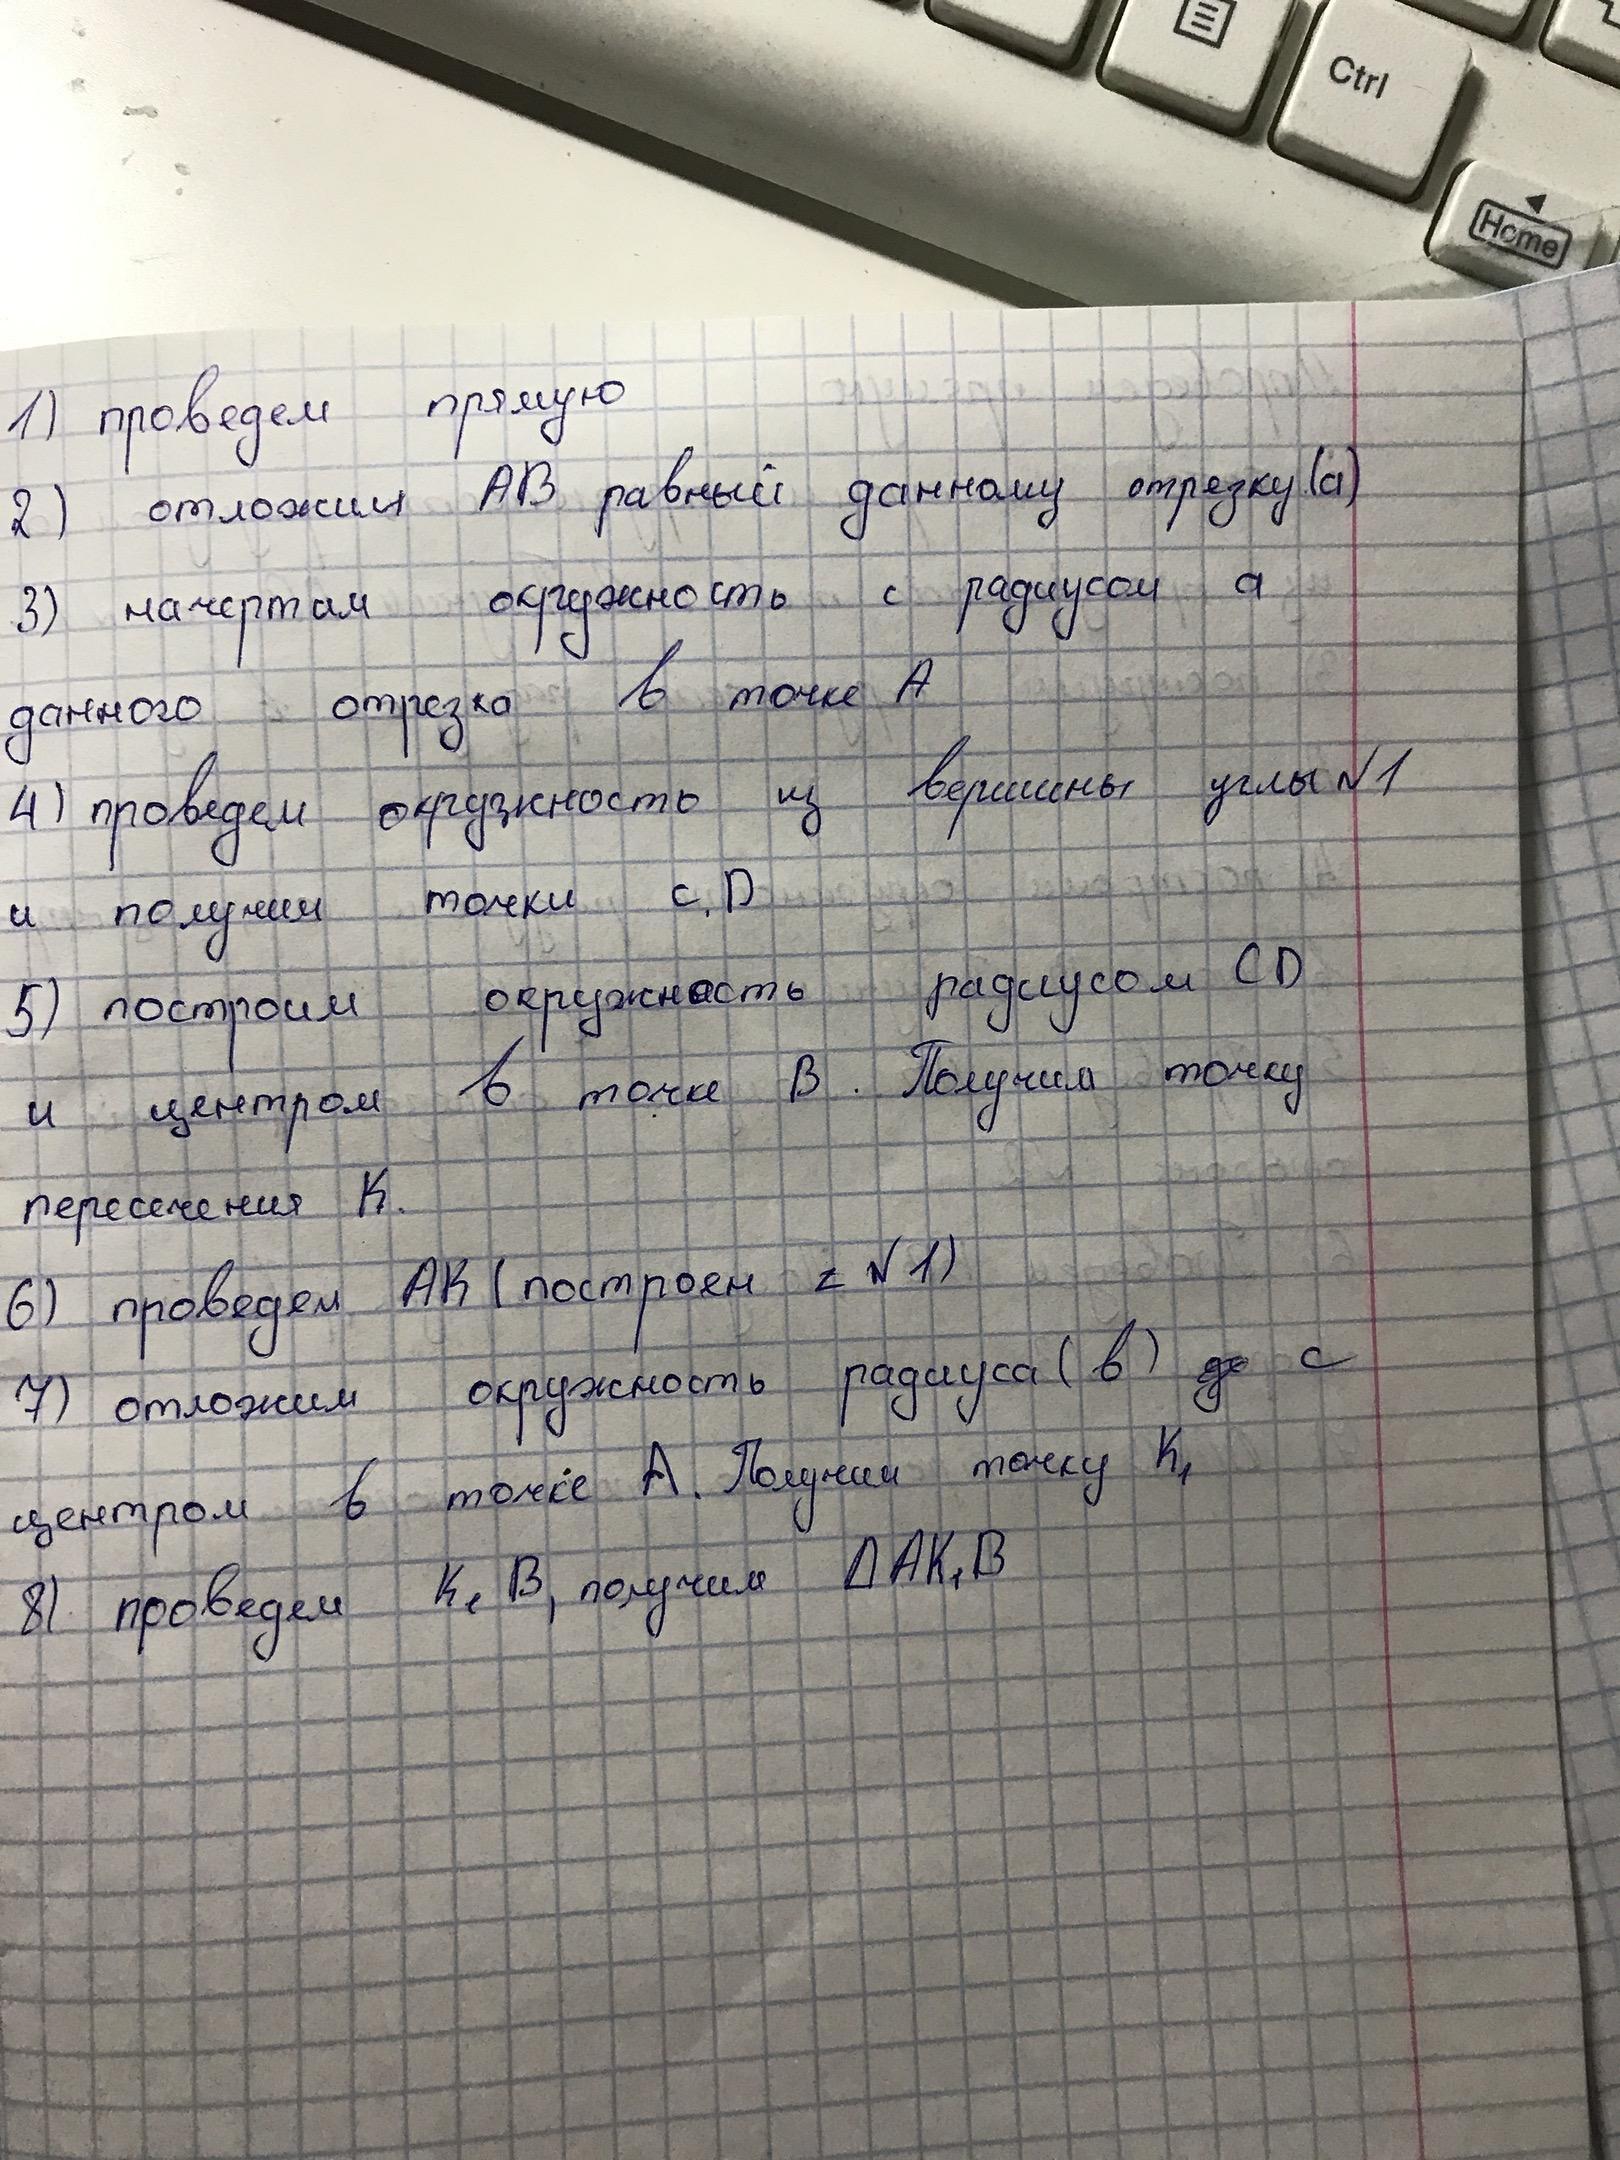 Ctrl
Home
1) проведем прямую
2) отложим АВ равный данному отрезку (а)
3) начертам окружность с радиусом а
данного отрезка в точке А
4) проведем окружность из вершины углы №1
и получим точки с, D
5) построим окружность радиусом CD
и центром в точке В. Получим точку
пересечения К.
6) проведем АК (построен ∠ №1)
7) отложим окружность радиуса (в) с
центром в точке А. Получим точку К₁
8) проведем К₁ В, получим ΔАК₁В